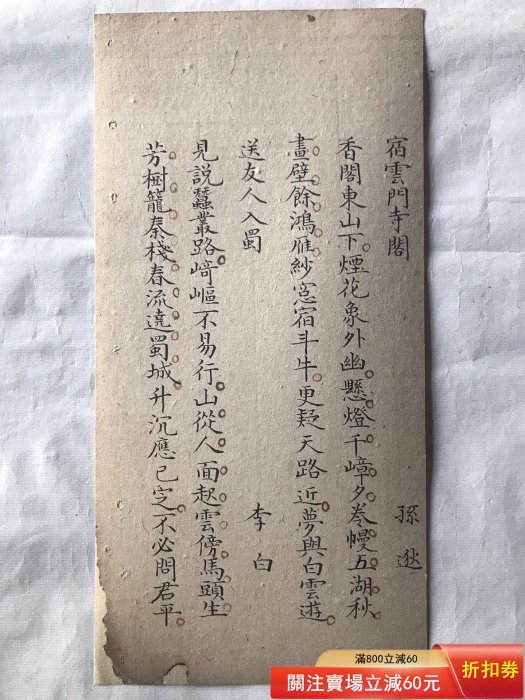 宿雲門寺閣
孫逖
香閣東山下煙花象外幽懸燈千嶂夕卷幔五湖秋
畫壁餘鴻雁紗窓宿斗牛更疑天路近夢與白雲遊
送友人入蜀
李白
見説蠶叢路﨑嶇不易行山從人面起雲傍馬頭生
芳樹籠秦棧春流遶蜀城升沉應已定不必問君平
滿800立減60
關注賣場立減60元
折扣券